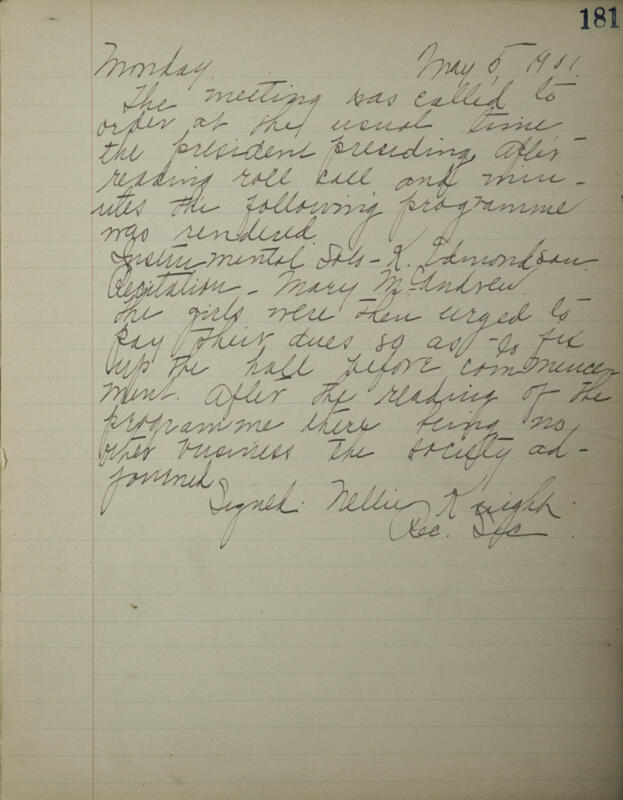 181
Monday. May 5, 1901.
The meeting was called to
order at the usual time
the president presiding, after
reading roll call and min-
utes the following programme
was rendered.
Instrumental Solo - K. Edmondson.
Recitation - Mary McAndrew.
the girls were then urged to
pay their dues so as to fix
up the hall before commence-
ment. After the reading of the
programme there being no
other business the society ad-
journed
Signed. Nellie Knight.
Rec. Sec.